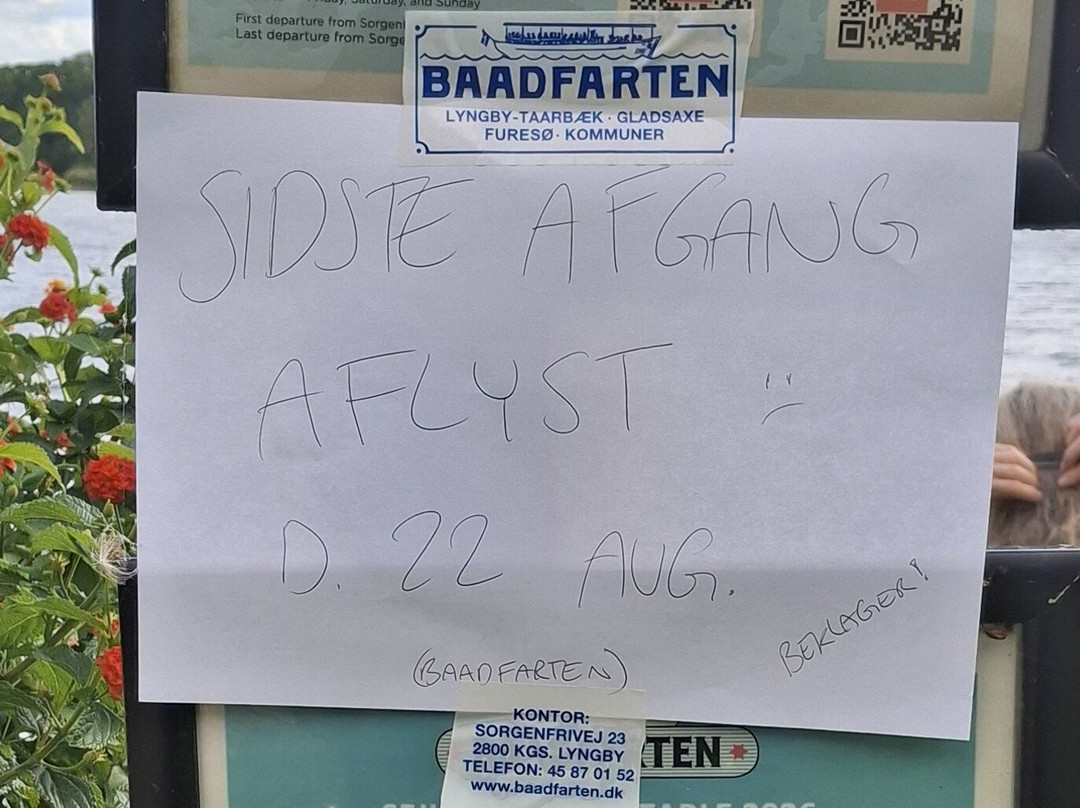 day, Saturday, and Sunday
First departure from Sorgenf
Last departure from Sorge
BAADFARTEN
LYNGBY-TAARBÆK · GLADSAXE
FURESØ · KOMMUNER
SIDSTE AFGANG
AFLYST :(
D. 22 AUG.
BEKLAGER!
(BAADFARTEN)
KONTOR:
SORGENFRIVEJ 23
2800 KGS. LYNGBY
TELEFON: 45 87 01 52
www.baadfarten.dk
RTEN